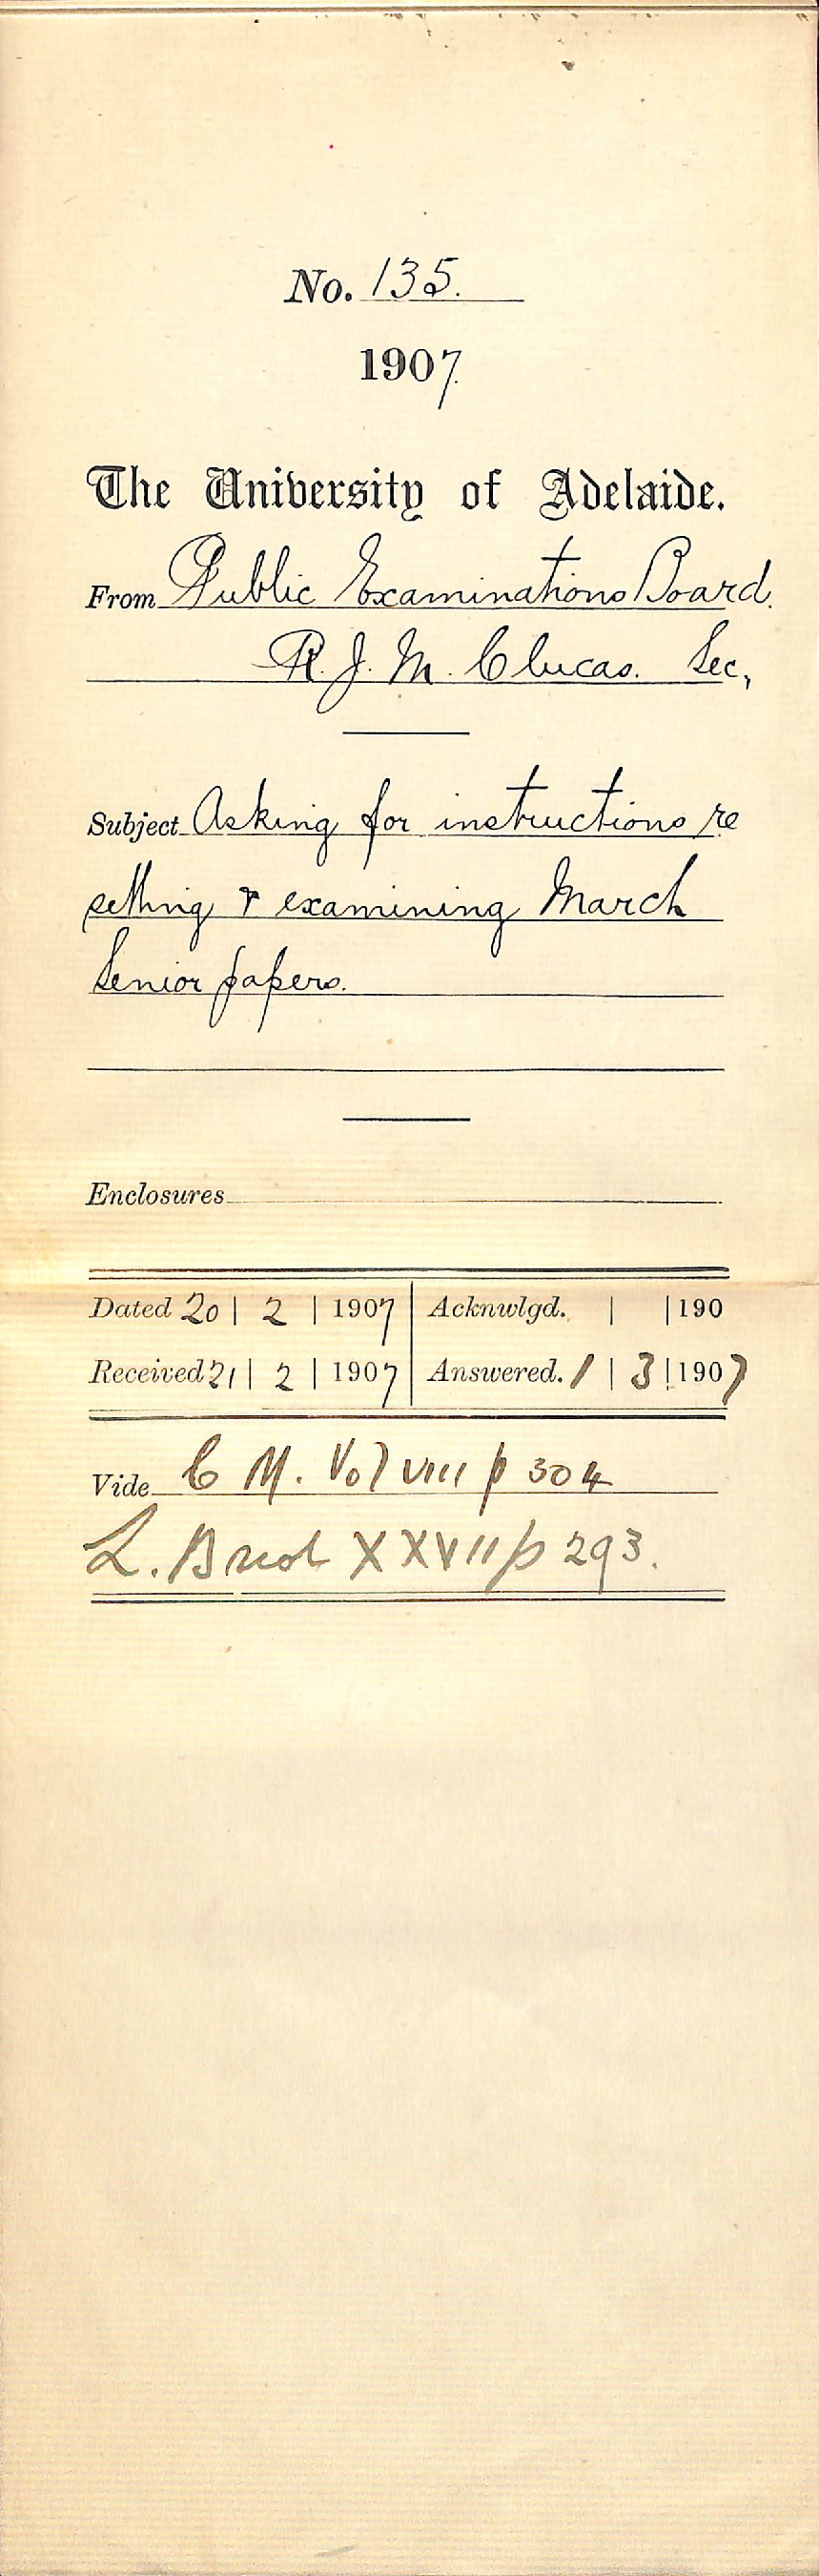 No. 135.
1907.
The University of Adelaide.
From Public Examinations Board.
R. J. M. Clucas. Sec,
Subject Asking for instructions re
setting & examining March
Senior papers.
Enclosures
Dated 20 | 2 | 1907 Acknwlgd. | | 190
Received 21 | 2 | 1907 Answered. 1 | 3 | 1907
Vide C M. Vol VIII p 304
L. XXVII p 293.